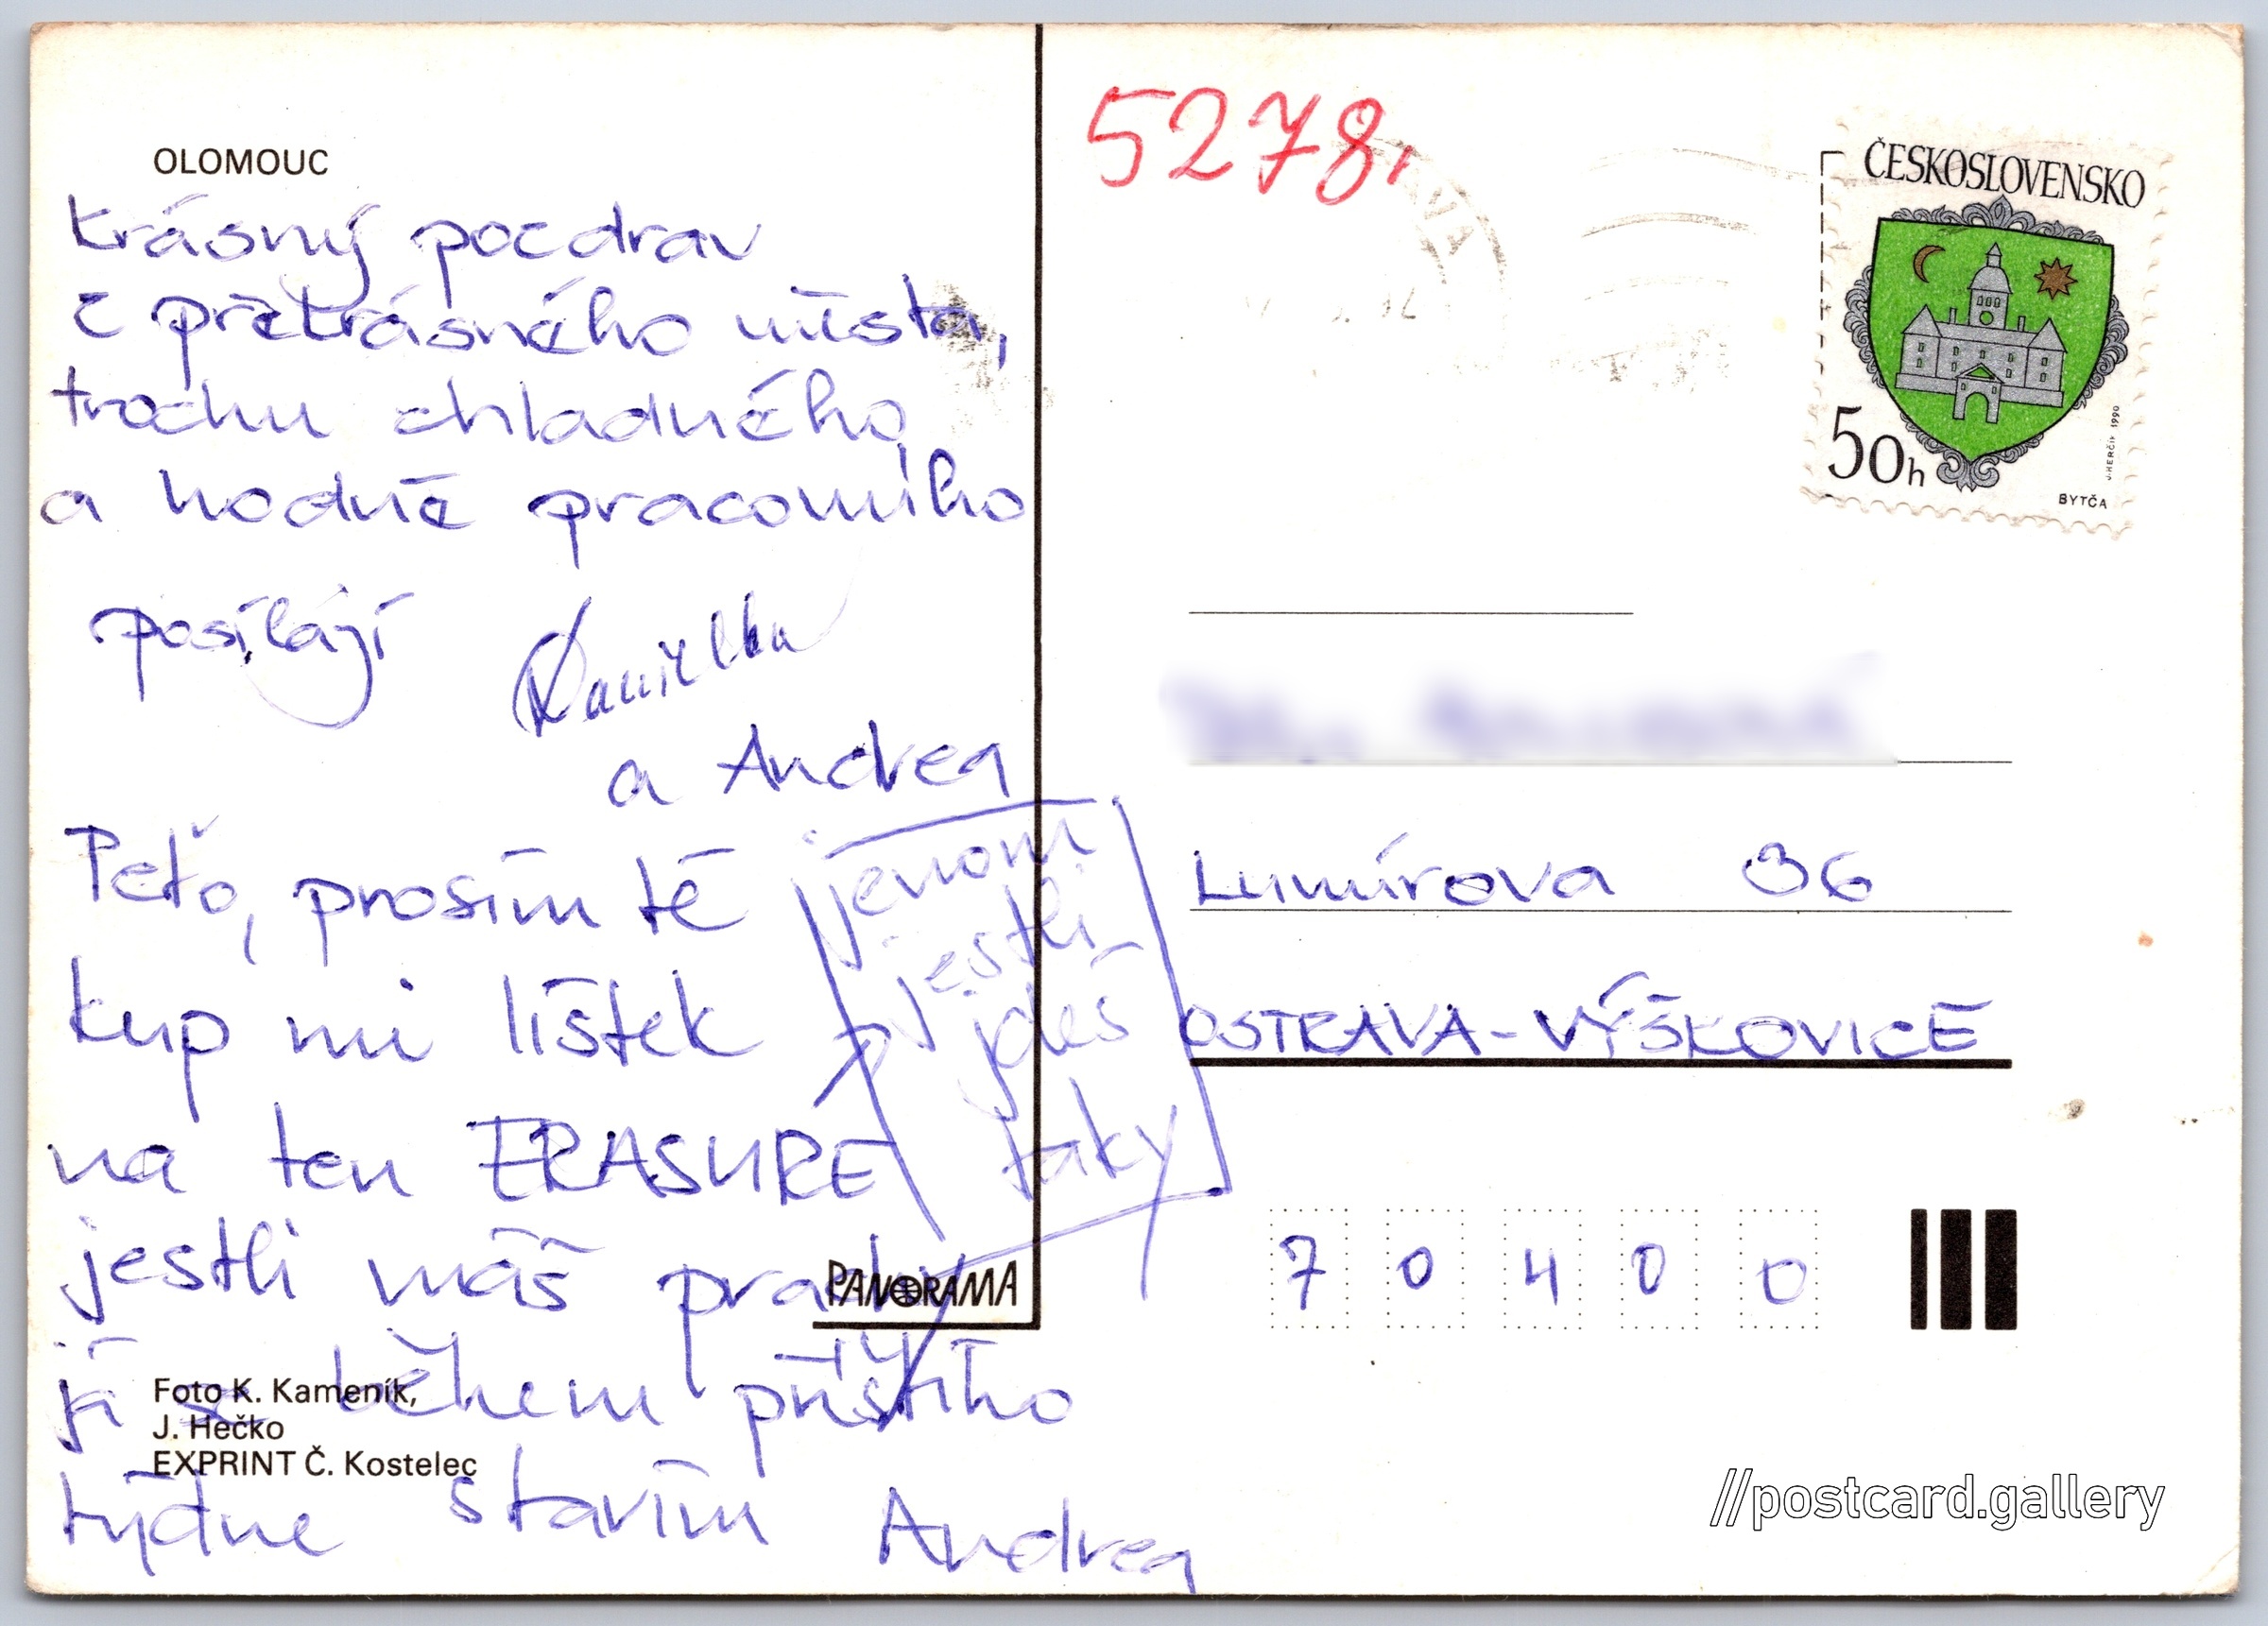 OLOMOUC
krásný pozdrav
z překrásného města,
trochu chladného,
a hodně pracovního
posílají Danielka
a Andrea
Peťo, prosím tě
kup mi lístek
na ten ERASURE
jestli máš prachy
já
během příštího
týdne stavím Andrea
jenom
jestli
jdeš
taky
PANORAMA
Foto K. Kameník,
J. Hečko
EXPRINT Č. Kostelec
5278,
ČESKOSLOVENSKO
50h
J. HERČÍK 1990
BYTČA
Lumírova 36
OSTRAVA - VÝŠKOVICE
7 0 4 0 0
//postcard.gallery